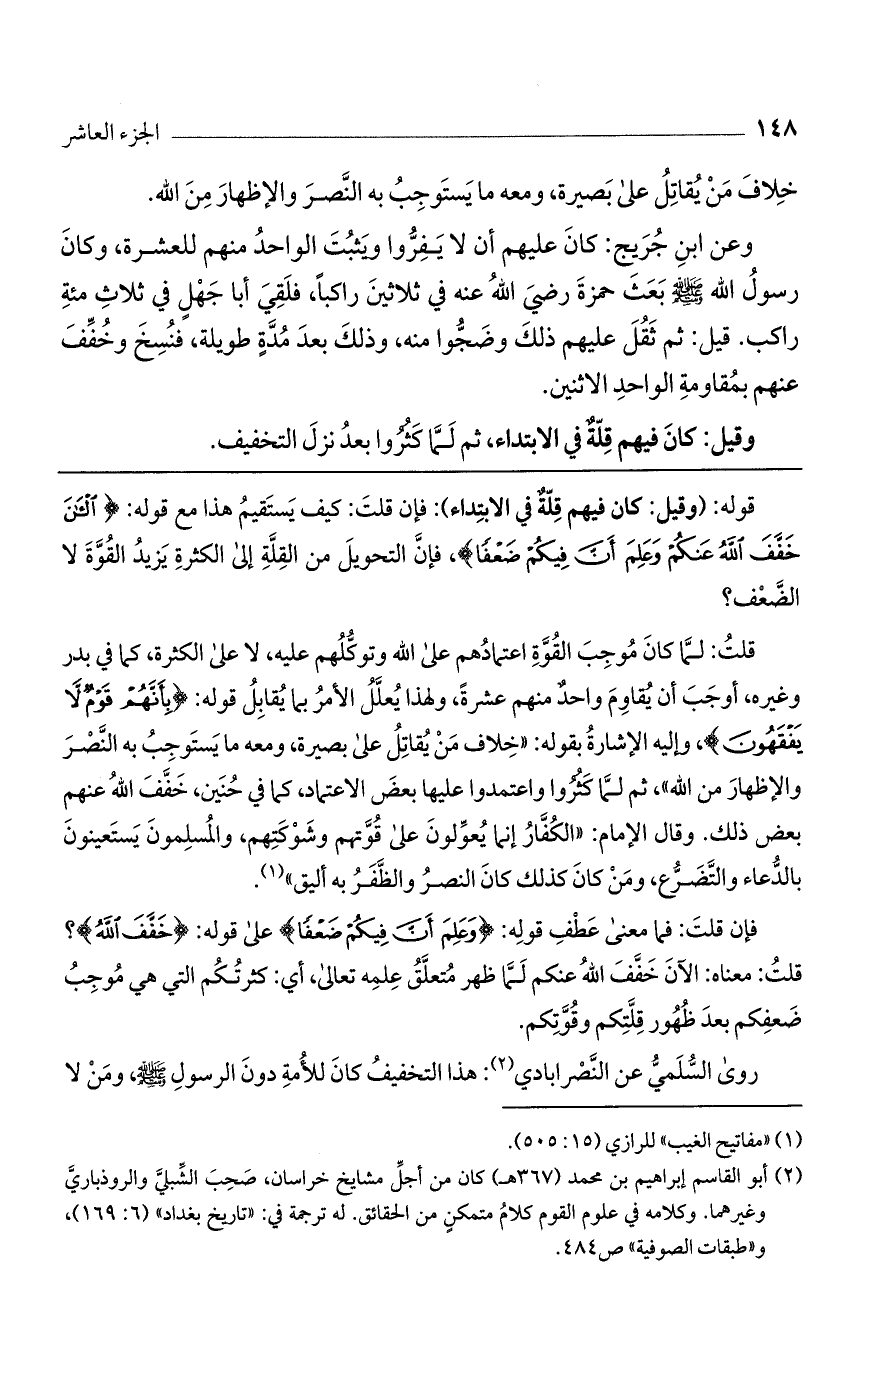 ١٤٨ الجزء العاشر
خِلافَ مَنْ يُقاتِلُ علىٰ بَصيرة، ومعه ما يَستَوجِبُ به النَّصرَ والإظهارَ مِنَ الله.
وعن ابنِ جُرَيج: كانَ عليهم أن لا يَفِرُّوا ويَثبُتَ الواحدُ منهم للعشرة، وكانَ
رسولُ الله ﷺ بَعَثَ حمزةَ رضيَ اللهُ عنه في ثلاثينَ راكباً، فلَقِيَ أبا جَهْلٍ في ثلاثِ مئةِ
راكب. قيل: ثم ثَقُلَ عليهم ذلكَ وضَجُّوا منه، وذلكَ بعدَ مُدَّةٍ طويلة، فنُسِخَ وخُفِّفَ
عنهم بمُقاومةِ الواحدِ الاثنين.
وقيل: كانَ فيهم قِلّةٌ في الابتداء، ثم لَـمَّا كَثُرُوا بعدُ نزلَ التخفيف.
قوله: (وقيل: كان فيهم قِلّةٌ في الابتِداء): فإن قلتَ: كيف يَستَقيمُ هذا مع قوله: ﴿ ٱلْـَٰٔنَ
خَفَّفَ ٱللَّهُ عَنكُمْ وَعَلِمَ أَنَّ فِيكُمْ ضَعْفًا﴾، فإنَّ التحويلَ من القِلَّةِ إلىٰ الكثرةِ يَزيدُ القُوَّةَ لا
الضَّعْف؟
قلتُ: لـمَّا كانَ مُوجِبَ القُوَّةِ اعتمادُهم علىٰ الله وتوكُّلُهم عليه، لا علىٰ الكثرة، كما في بدر
وغيره، أوجَبَ أن يُقاوِمَ واحدٌ منهم عشرةً، ولهذا يُعلَّلُ الأمرُ بما يُقابِلُ قوله: ﴿بِأَنَّهُمْ قَوْمٌ لَّا
يَفْقَهُونَ ﴾، وإليه الإشارةُ بقوله: «خِلاف مَنْ يُقاتِلُ علىٰ بصيرة، ومعه ما يَستَوجِبُ به النَّصْرَ
والإظهارَ من الله»، ثم لـمَّا كَثُرُوا واعتمدوا عليها بعضَ الاعتماد، كما في حُنَين، خَفَّفَ اللهُ عنهم
بعض ذلك. وقال الإمام: «الكُفَّارُ إنما يُعوِّلونَ علىٰ قُوَّتهم وشَوْكَتِهم، والمُسلِمونَ يَستَعينونَ
بالدُّعاء والتَّضَرُّع، ومَنْ كانَ كذلك كانَ النصرُ والظَّفَرُ به أليق»(١).
فإن قلتَ: فما معنىٰ عَطْفِ قولِه: ﴿وَعَلِمَ أَنَّ فِيكُمْ ضَعْفًا﴾ علىٰ قوله: ﴿خَفَّفَ ٱللَّهُ﴾؟
قلتُ: معناه: الآنَ خَفَّفَ اللهُ عنكم لَـمَّا ظهر مُتعلَّقُ عِلمِه تعالىٰ، أي: كثرتُـكُم التي هي مُوجِبُ
ضَعفِكم بعدَ ظُهُور قِلَّتِكم وقُوَّتِكم.
روىٰ السُّلَميُّ عن النَّصْرابادي(٢): هذا التخفيفُ كانَ للأُمةِ دونَ الرسولِ ﷺ، ومَنْ لا
(١) «مفاتيح الغيب» للرازي (١٥: ٥٠٥).
(٢) أبو القاسم إبراهيم بن محمد (٣٦٧هـ) كان من أجلِّ مشايخ خراسان، صَحِبَ الشِّبليَّ والروذباريَّ
وغيرهما. وكلامه في علوم القوم كلامُ متمكنٍ من الحقائق. له ترجمة في: «تاريخ بغداد» (٦: ١٦٩)،
و«طبقات الصوفية» ص٤٨٤.